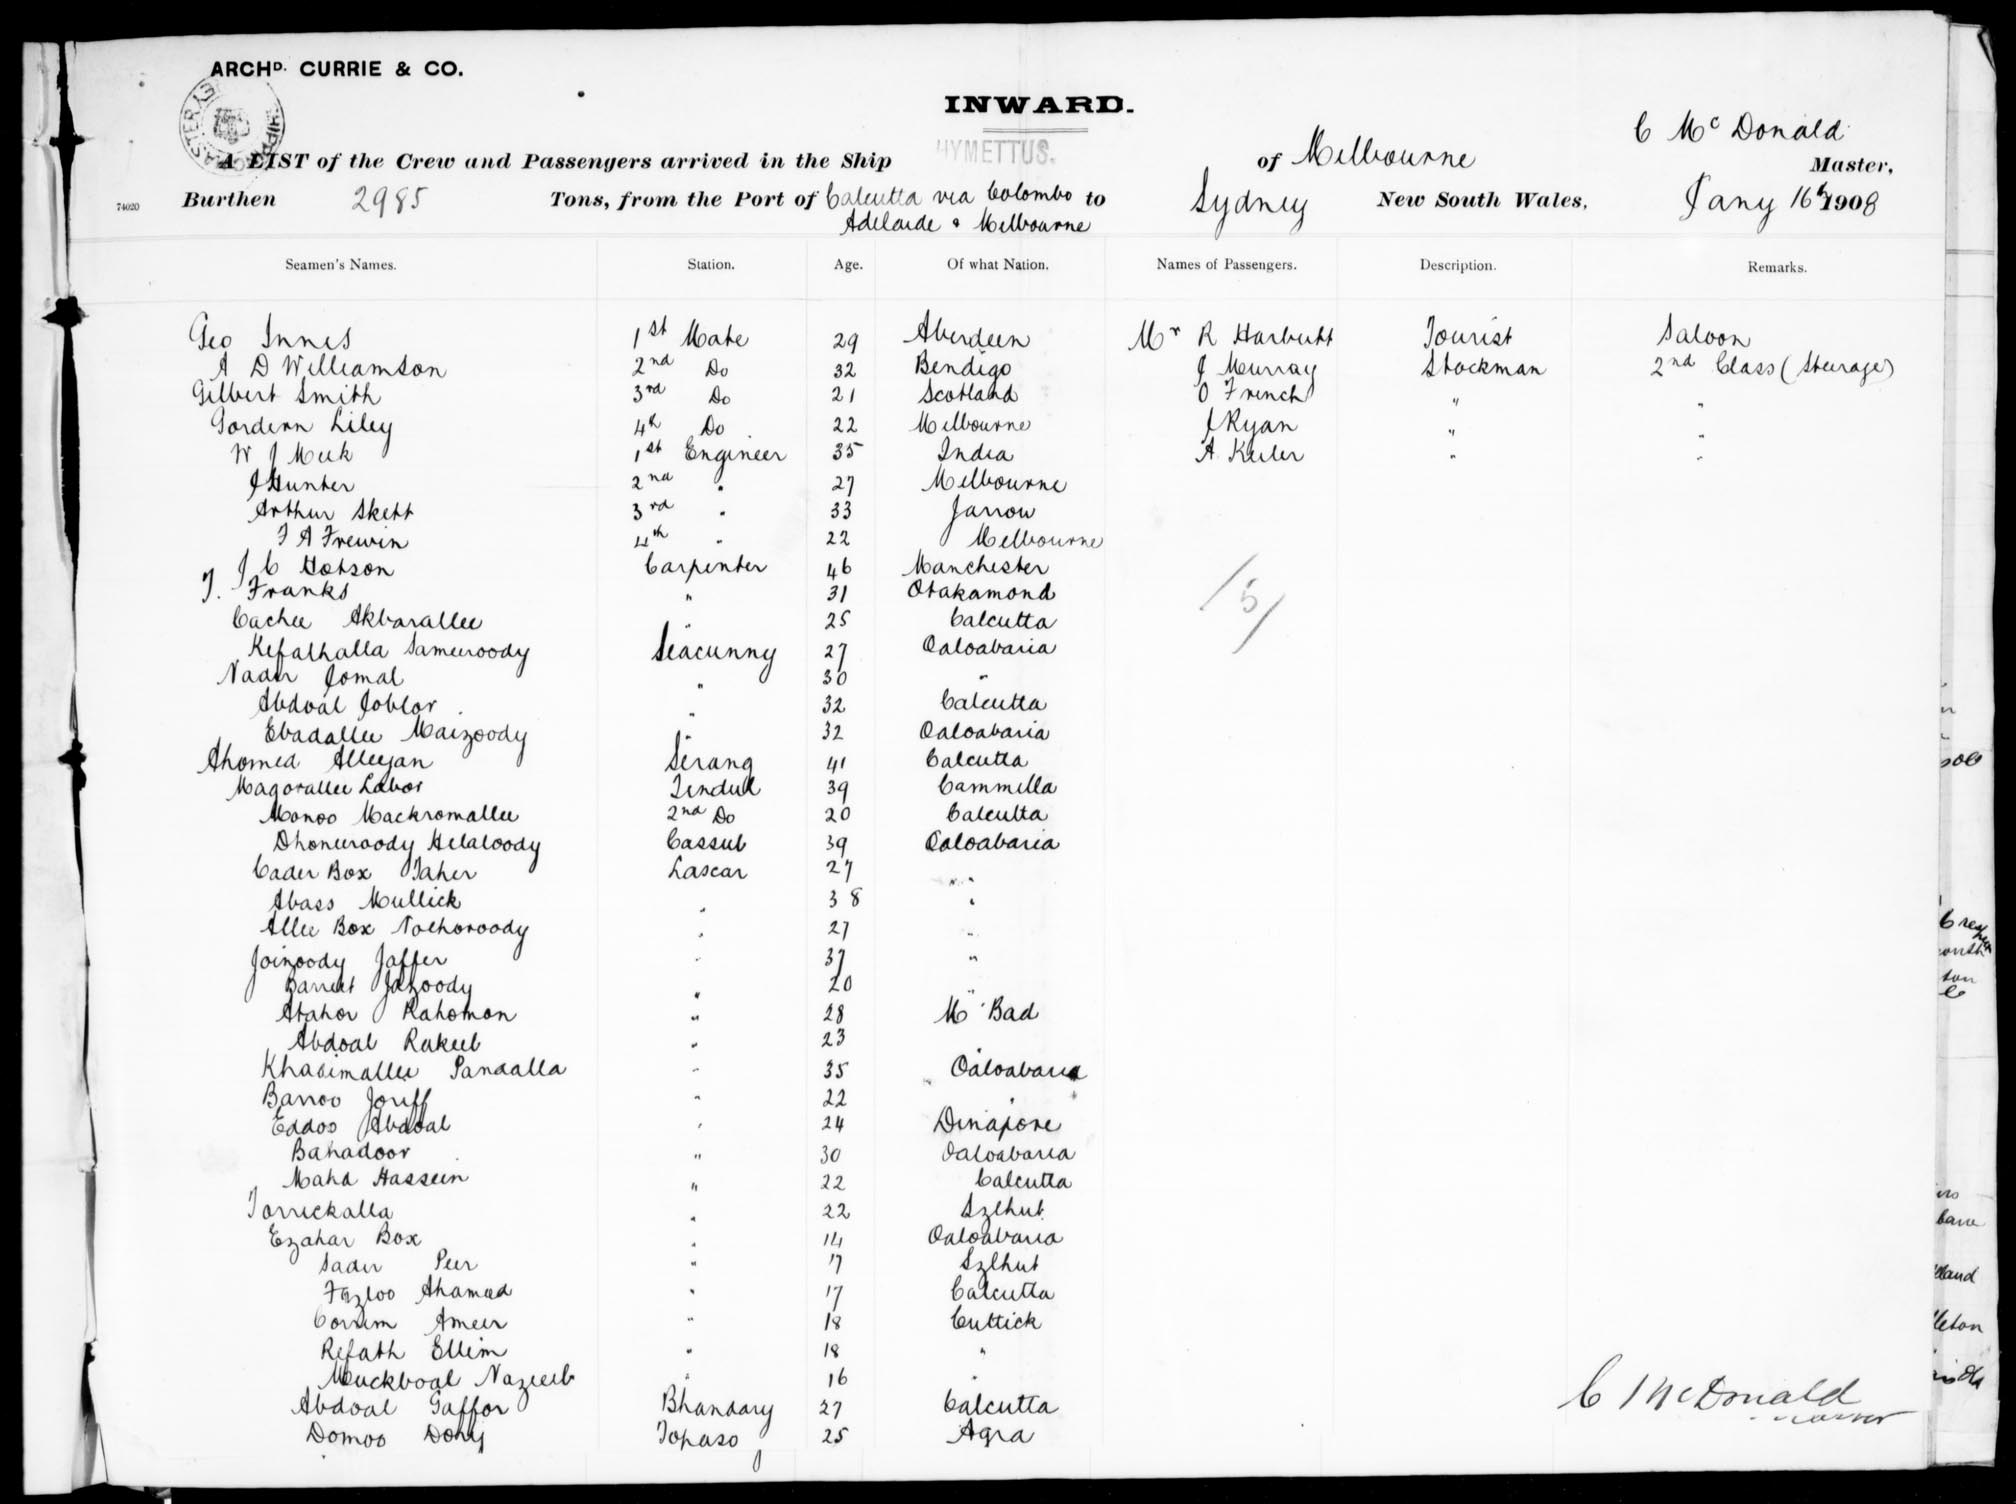 ARCHD. CURRIE & CO.
INWARD.
HYMETTUS.
C McDonald
A LIST of the Crew and Passengers arrived in the Ship of Melbourne Master,
74020 Burthen 2985 Tons, from the Port of Calcutta via Colombo to Sydney New South Wales, Jany 16th 1908
Adelaide & Melbourne
Seamen's Names. Station. Age. Of what Nation. Names of Passengers. Description. Remarks.
Geo Innes 1st Mate 29 Aberdeen Mr R Harbutt Tourist Saloon
A D Williamson 2nd Do 32 Bendigo J Murray Stockman 2nd Class (Steerage)
Gilbert Smith 3rd Do 21 Scotland O French " "
Gordern Liley 4th Do 22 Melbourne J Ryan " "
W J Meek 1st Engineer 35 India A Keiler " "
J Hunter 2nd " 27 Melbourne
Arthur Skett 3rd " 33 Jarrow
F A Frewin 4th " 22 Melbourne
J C Hotson Carpenter 46 Manchester
T. Franks " 31 Otakamond
Cachee Akbarallee " 25 Calcutta
Kefathalla Sameeroody Seacunny 27 Oaloabaria
Nader Jomal " 30 "
Abdoal Joblar " 32 Calcutta
Ebadallee Maizoody " 32 Oaloabaria
Ahomed Alleejan Serang 41 Calcutta
Magorallee Labor Tindul 39 Cammilla
Monoo Mackromallee 2nd Do 20 Calcutta
Dhoneeroody Helaloody Cassub 39 Oaloabaria
Cader Box Taher Lascar 27 " "
Abass Mullick " 38 "
Allee Box Nothoroody " 27 "
Joinoody Jaffer " 37 "
Barreet Jazoody " 20 "
Atahor Rahoman " 28 M' Bad
Abdoal Rakeeb " 23 "
Khasimallee Pandalla " 35 Oaloabaria
Barroo Joriff " 22 "
Eddoo Abdoal " 24 Dinapore
Bahadoor " 30 Oaloabaria
Maha Hassein " 22 Calcutta
Torrickalla " 22 Szlhut
Ezahar Box " 14 Oaloabaria
Sader Peer " 17 Szlhut
Fazloo Ahamed " 17 Calcutta
Corrim Ameer " 18 Cuttick
Refath Ellim " 18 "
Muckboal Nazeeb " 16 "
Abdoal Gaffor Bhandary 27 Calcutta
Domoo Dohy Topaso 25 Agra
/5/
C McDonald